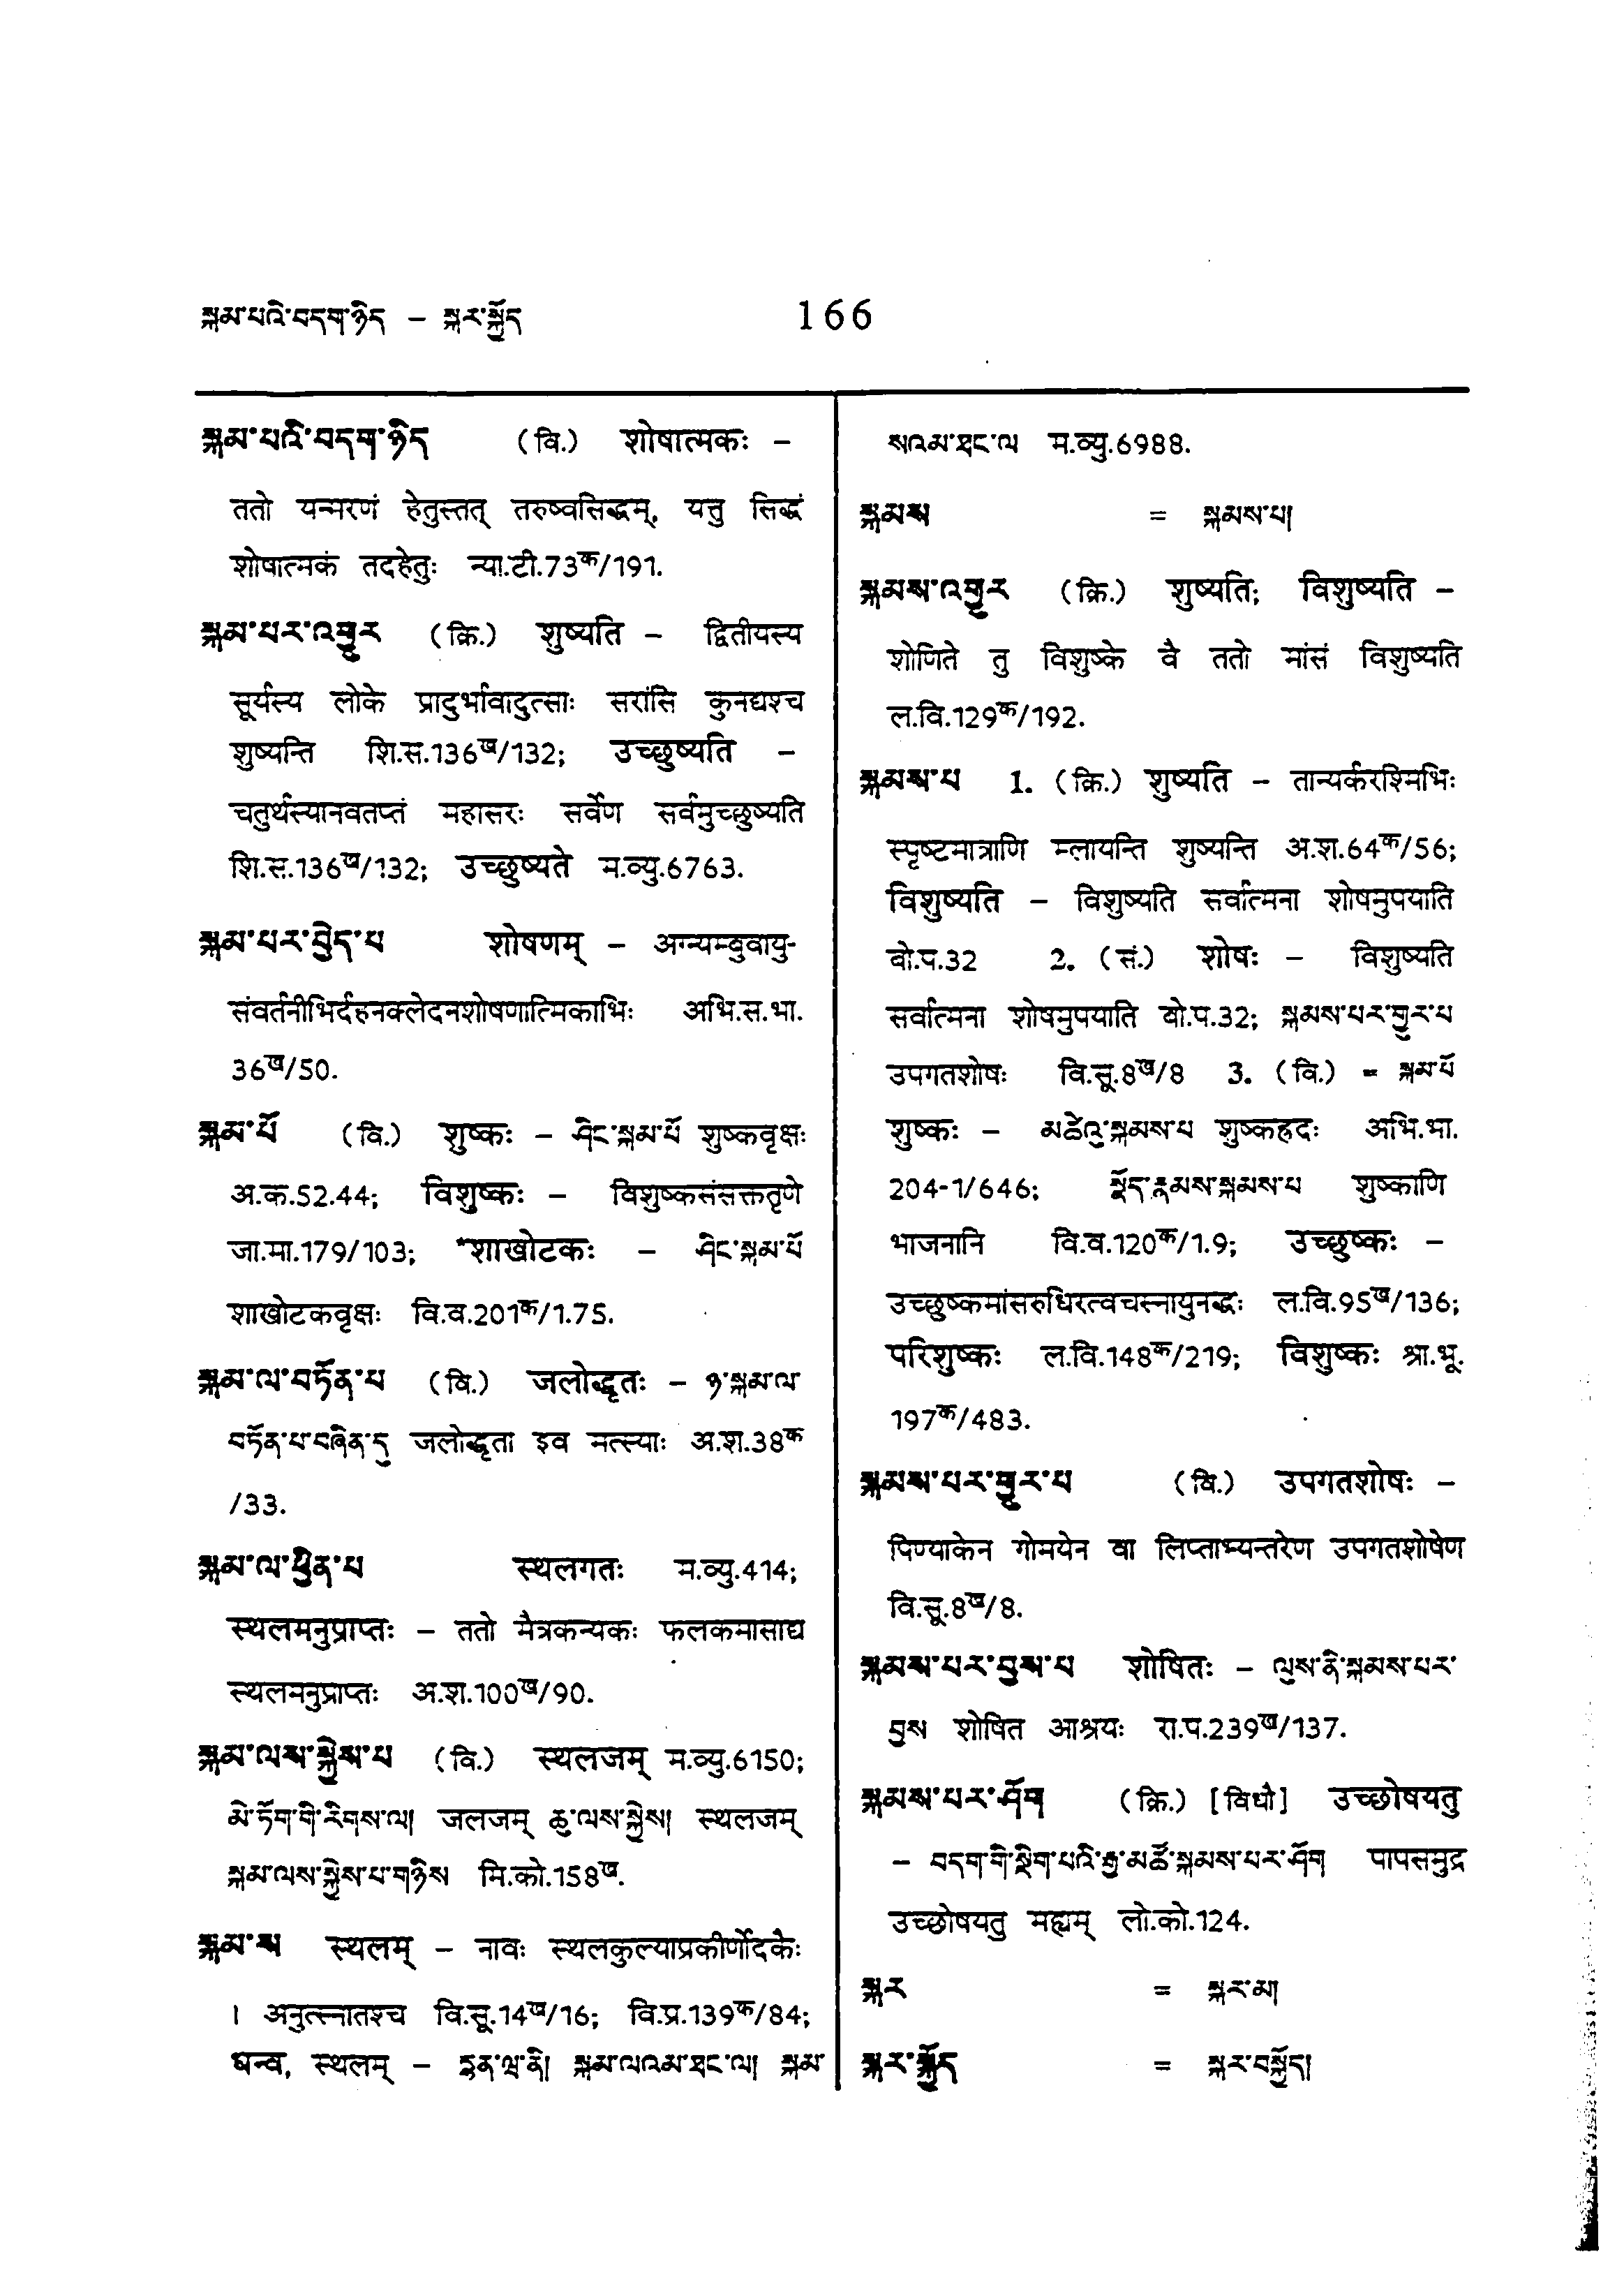 སྐམ་པའི་བདག་ཉིད – སྐར་སྐྱོད 166
སྐམ་པའི་བདག་ཉིད (वि.) शोषात्मकः –
ततो यन्मरणं हेतुस्तत् तरुष्वसिद्धम्, यत्तु सिद्धं
शोषात्मकं तदहेतुः न्या.टी.73क/191.
སྐམ་པར་འགྱུར (क्रि.) शुष्यति – द्वितीयस्य
सूर्यस्य लोके प्रादुर्भावादुत्साः सरांसि कुनद्यश्च
शुष्यन्ति शि.स.136ख/132; उच्छुष्यति –
चतुर्थस्यानवतप्तं महासरः सर्वेण सर्वमुच्छुष्यति
शि.स.136ख/132; उच्छुष्यते म.व्यु.6763.
སྐམ་པར་བྱེད་པ शोषणम् – अग्न्यम्बुवायु-
संवर्तनीभिर्दहनक्लेदनशोषणात्मिकाभिः अभि.स.भा.
36ख/50.
སྐམ་པོ (वि.) शुष्कः – ཤིང་སྐམ་པོ शुष्कवृक्षः
अ.क.52.44; विशुष्कः – विशुष्कसंसक्ततृणे
जा.मा.179/103; *शाखोटकः – ཤིང་སྐམ་པོ
शाखोटकवृक्षः वि.व.201क/1.75.
སྐམ་ལ་བཏོན་པ (वि.) जलोद्धृतः – ཉ་སྐམ་ལ་
བཏོན་པ་བཞིན་དུ जलोद्धृता इव मत्स्याः अ.श.38क
/33.
སྐམ་ལ་ཕྱིན་པ स्थलगतः म.व्यु.414;
स्थलमनुप्राप्तः – ततो मैत्रकन्यकः फलकमासाद्य
स्थलमनुप्राप्तः अ.श.100ख/90.
སྐམ་ལས་སྐྱེས་པ (वि.) स्थलजम् म.व्यु.6150;
མེ་ཏོག་གི་རིགས་ལ། जलजम् ཆུ་ལས་སྐྱེས། स्थलजम्
སྐམ་ལས་སྐྱེས་པ་གཉིས मि.को.158ख.
སྐམ་ས स्थलम् – नावः स्थलकुल्याप्रकीर्णोदकैः
। अनुत्स्नातश्च वि.सू.14ख/16; वि.प्र.139क/84;
धन्व, स्थलम् – དྷན་ཝ་ནི། སྐམ་ལའམ་ཐང་ལ། སྐམ་
སའམ་ཐང་ལ म.व्यु.6988.
སྐམས = སྐམས་པ།
སྐམས་འགྱུར (क्रि.) शुष्यति; विशुष्यति –
शोणिते तु विशुष्के वै ततो मांसं विशुष्यति
ल.वि.129क/192.
སྐམས་པ 1. (क्रि.) शुष्यति – तान्यर्करश्मिभिः
स्पृष्टमात्राणि म्लायन्ति शुष्यन्ति अ.श.64क/56;
विशुष्यति – विशुष्यति सर्वात्मना शोषमुपयाति
बो.प.32 2. (सं.) शोषः – विशुष्यति
सर्वात्मना शोषमुपयाति बो.प.32; སྐམས་པར་གྱུར་པ
उपगतशोषः वि.सू.8ख/8 3. (वि.) = སྐམ་པོ
शुष्कः – མཚེའུ་སྐམས་པ शुष्कह्रदः अभि.भा.
204-1/646; སྣོད་རྣམས་སྐམས་པ शुष्काणि
भाजनानि वि.व.120क/1.9; उच्छुष्कः –
उच्छुष्कमांसरुधिरत्वचस्नायुनद्धः ल.वि.95ख/136;
परिशुष्कः ल.वि.148क/219; विशुष्कः श्रा.भू.
197क/483.
སྐམས་པར་གྱུར་པ (वि.) उपगतशोषः –
पिण्याकेन गोमयेन वा लिप्ताभ्यन्तरेण उपगतशोषेण
वि.सू.8ख/8.
སྐམས་པར་བྱས་པ शोषितः – ལུས་ནི་སྐམས་པར་
བྱས शोषित आश्रयः रा.प.239ख/137.
སྐམས་པར་ཤོག (क्रि.) [विधौ] उच्छोषयतु
– བདག་གི་སྡིག་པའི་རྒྱ་མཚོ་སྐམས་པར་ཤོག पापसमुद्र
उच्छोषयतु मह्यम् लो.को.124.
སྐར = སྐར་མ།
སྐར་སྐྱོད = སྐར་བསྐྱོད།